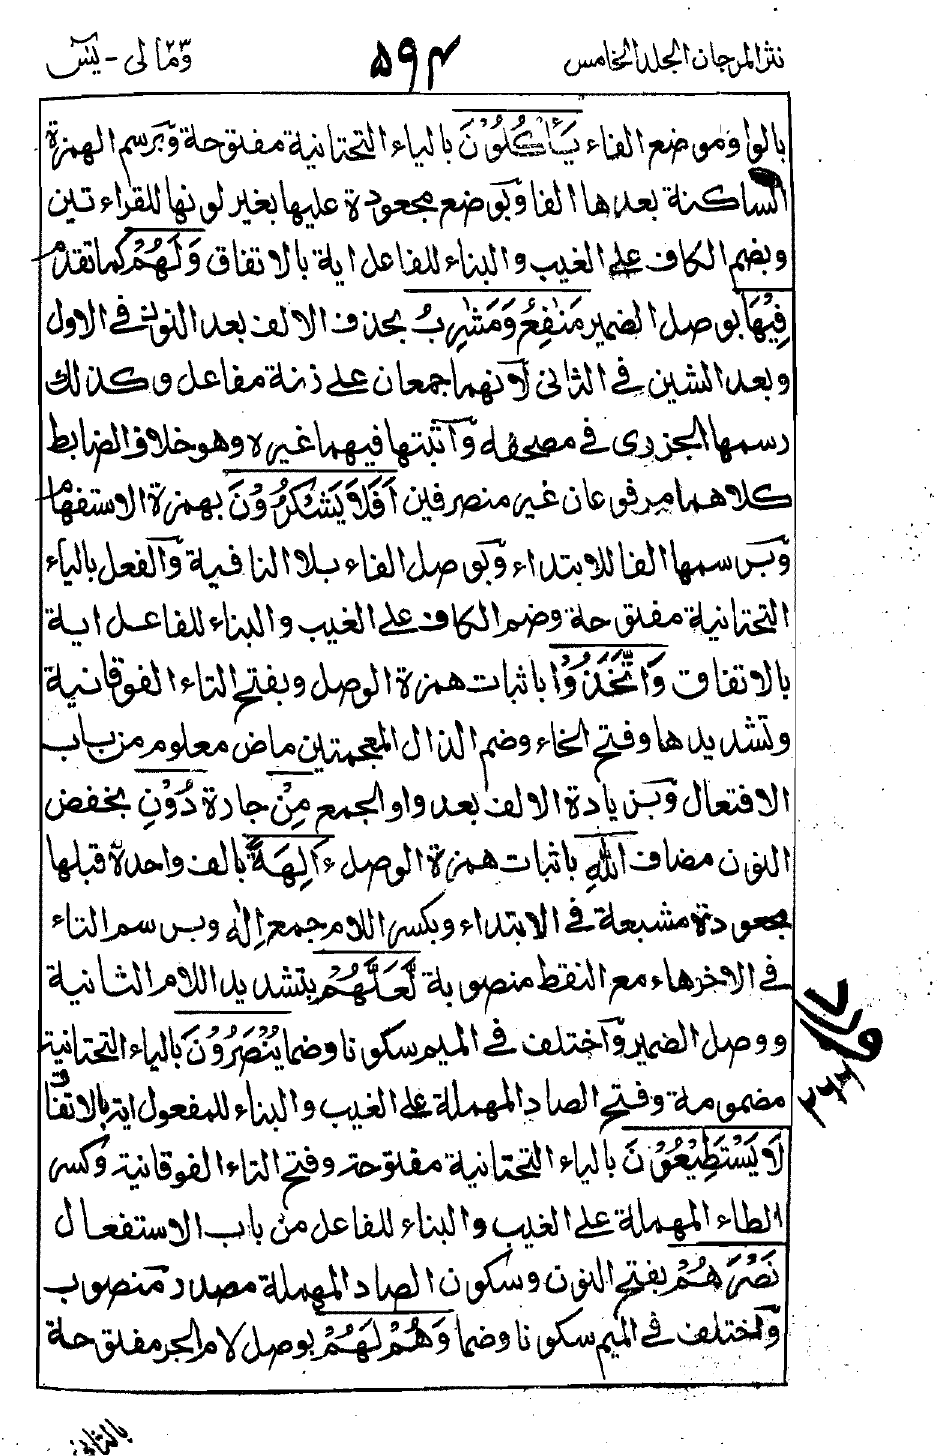 نثر المرجان الجلد الخامس ۵۹۴ ومالى ۲۳ - يٰسٓ
بالواو موضع الفاء يَأْكُلُوْنَ بالياء التحتانية مفتوحة وبرسم الهمزة
الساكنة بعدها الفا وبوضع مجعودة عليها بغير لونها للقراءتين
وبضم الكاف على الغيب والبناء للفاعل اية بالاتفاق وَلَهُمْ كما تقدم
فِيْهَا بوصل الضمير مَنٰفِعُ وَمَشٰرِبُ بحذف الالف بعد النون فى الاول
وبعد الشين فى الثانى لانهما جمعان على زنة مفاعل وكذلك
رسمها الجزرى فى مصحفه واثبتها فيهما غيره وهو خلاف الضابط
كلاهما مرفوعان غير منصرفين اَفَلَا يَشْكُرُوْنَ بهمزة الاستفهام
وبرسمها الفا للابتداء وبوصل الفاء بلا النافية والفعل بالياء
التحتانية مفتوحة وضم الكاف على الغيب والبناء للفاعل اية
بالاتفاق وَاتَّخَذُوْا باثبات همزة الوصل وبفتح التاء الفوقانية
وتشديدها وفتح الخاء وضم الذال المعجمتين ماض معلوم من باب
الافتعال وبزيادة الالف بعد واو الجمع مِنْ جارة دُوْنِ بخفض
النون مضاف اللّٰهِ باثبات همزة الوصل ءَالِهَةً بالف واحدة قبلها
مجعودة مشبعة فى الابتداء وبكسر اللام جمع اِلٰه وبرسم التاء
فى الاخر هاء مع النقط منصوبة لَّعَلَّهُمْ بتشديد اللام الثانية
ووصل الضمير واختلف فى الميم سكونا وضما يُنْصَرُوْنَ بالياء التحتانية
مضمومة وفتح الصاد المهملة على الغيب والبناء للمفعول اية بالاتفاق
لَا يَسْتَطِيْعُوْنَ بالياء التحتانية مفتوحة وفتح التاء الفوقانية وكسر
الطاء المهملة على الغيب والبناء للفاعل من باب الاستفعال
نَصْرَهُمْ بفتح النون وسكون الصاد المهملة مصدر منصوب
واختلف فى الميم سكونا وضما وَهُمْ لَهُمْ بوصل لام الجر مفتوحة